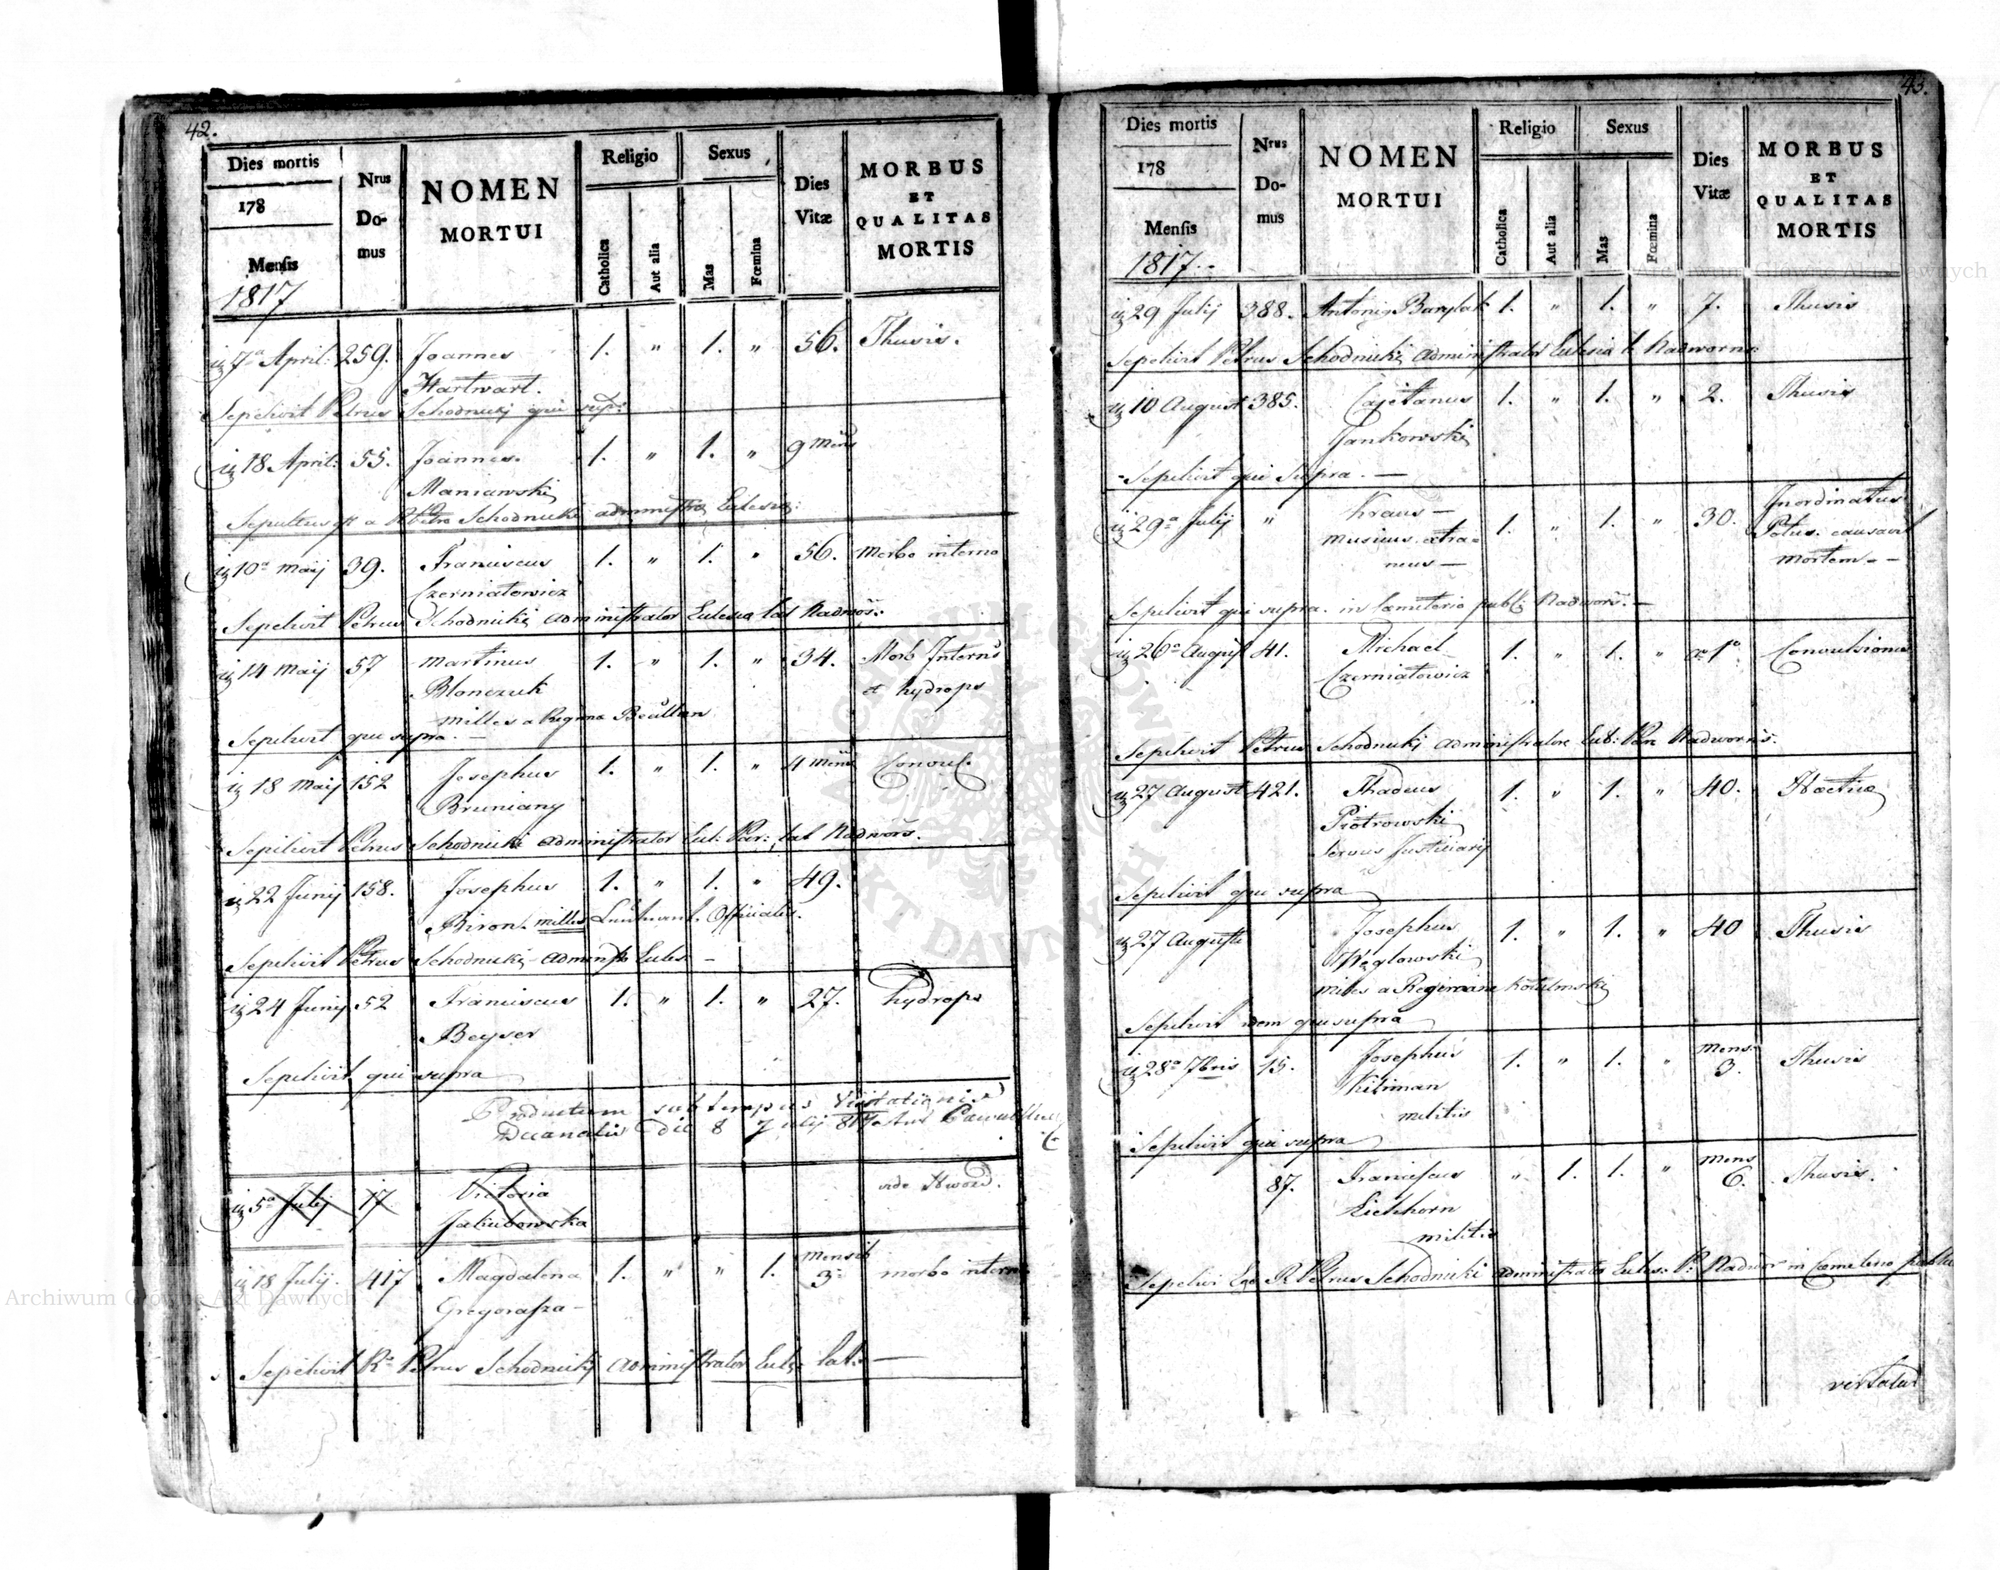 42.
Dies mortis
178
Mensis
1817
Nrus Do- mus
NOMEN MORTUI
Religio
Catholica
Aut alia
Sexus
Mas
Fœmina
Dies Vitæ
MORBUS ET QUALITAS MORTIS
7a April: 259. Joannes 1. " 1. " 56. Thusis.
Hartwart.
Sepelivit Petrus Schodnicki qui sup:
18 April: 55. Joannes 1. " 1. " 9 Mens
Maniawski
Sepultus est a Petro Schodnicki administra Eclesiæ
10a Maij 39. Franciscus 1. " 1. " 56. Morbo interno
Czerniatowicz
Sepelivit Petrus Schodnicki Administrator Eclesia lat Nadwor:
14 Maij 57 Martinus 1. " 1. " 34. Morb Interns
Blonczuk et hydrops
Milles a Regima
Sepelivit qui supra. —
18 Maij 152 Josephus 1. " 1. " 4 Mens Convul.
Bruniany
Sepelivit Petrus Schodnicki Administrator Ecl: Par: lat Nadwor.
22 Junij 158. Josephus 1. " 1. " 49.
Biron. milles Officialis.
Sepelivit Petrus Schodnicki Adminstr Eccles —
24 Junij 52 Franciscus 1. " 1. " 27. hydrops
Beyser
Sepelivit qui supra
Productum sub tempus Visitationis
Decanalis die 8 Julij 817
5a Julij 17 Victoria vide
Jakubowska
18 Julij. 417 Magdalena 1. " " 1. Mensib 3. morbo interno
Gregorasza —
Sepelivit Petrus Schodnicki Administrator Eccl: lat. —
43.
Dies mortis
178
Mensis
1817.
Nrus Do- mus
NOMEN MORTUI
Religio
Catholica
Aut alia
Sexus
Mas
Fœmina
Dies Vitæ
MORBUS ET QUALITAS MORTIS
29 Julij 388. Antonis Barylak 1. " 1. " 7. Thusis
Sepelivit Petrus Schodnicki Administrator Eclesia Nadworno
10 August 385. Cajetanus 1. " 1. " 2. Thusis
Jankowski
Sepelivit qui Supra. —
29a Julij " Kraus — 1. " 1. " 30. Inordinatus
musicus extra= Potus causavit
neus — Mortem —
Sepelivit qui supra. in Cæmiterio publ: Nadwor. —
26a August 41. Michael 1. " 1. " 1o Convulsione
Czerniatowicz
Sepelivit Petrus Schodnicki Administrator Ecl: Nadwornis.
27 August 421. Thadeus 1. " 1. " 40. Hectica
Piotrowski
Servus Justiciarij
Sepelivit qui supra
27 Augusti Josephus 1. " 1. " 40 Thusis
Węglowski
miles a
Sepelivit idem qui supra
28a 7bris 15. Josephus 1. " 1. " Mens. 3. Thusis
Kiliman
militis
Sepelivit qui supra
87. Franciscus " 1. 1. " Mens 6. Thusis.
Eichhorn
militis
Sepelivi Ego R Petrus Schodnicki Administrator Eccles: P: Nadwor in Cæmeterio publico
vertatur
ARCHIWUM GŁÓWNE AKT DAWNYCH
Archiwum Główne Akt Dawnych
Archiwum Główne Akt Dawnych